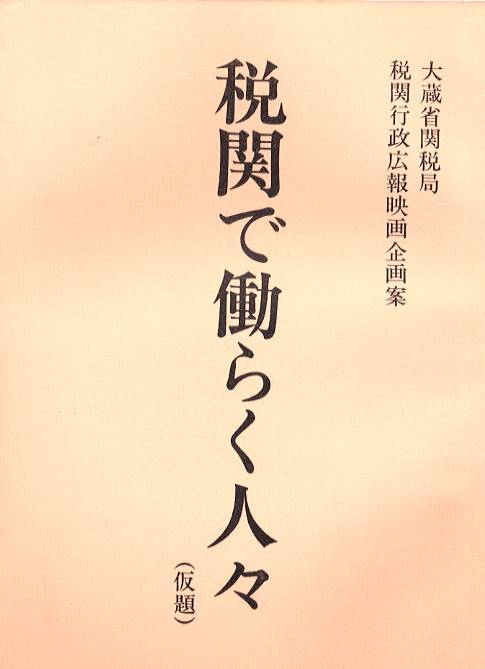 大蔵省関税局
税関行政広報映画企画案
税関で働らく人々
（仮題）